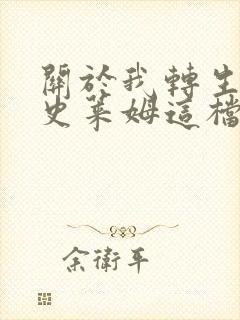 關於我轉生
史萊姆這檔
余衛平